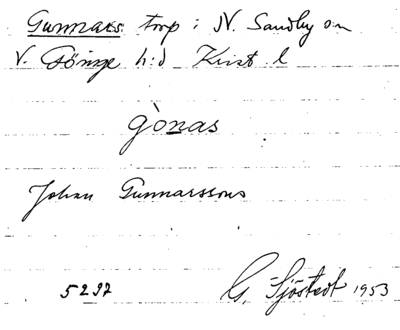 Gunnars torp i N. Sandby sn
V. Göinge h:d Krist l
gònas
Johan Gunnarssons
5297
G. Sjöstedt 1953